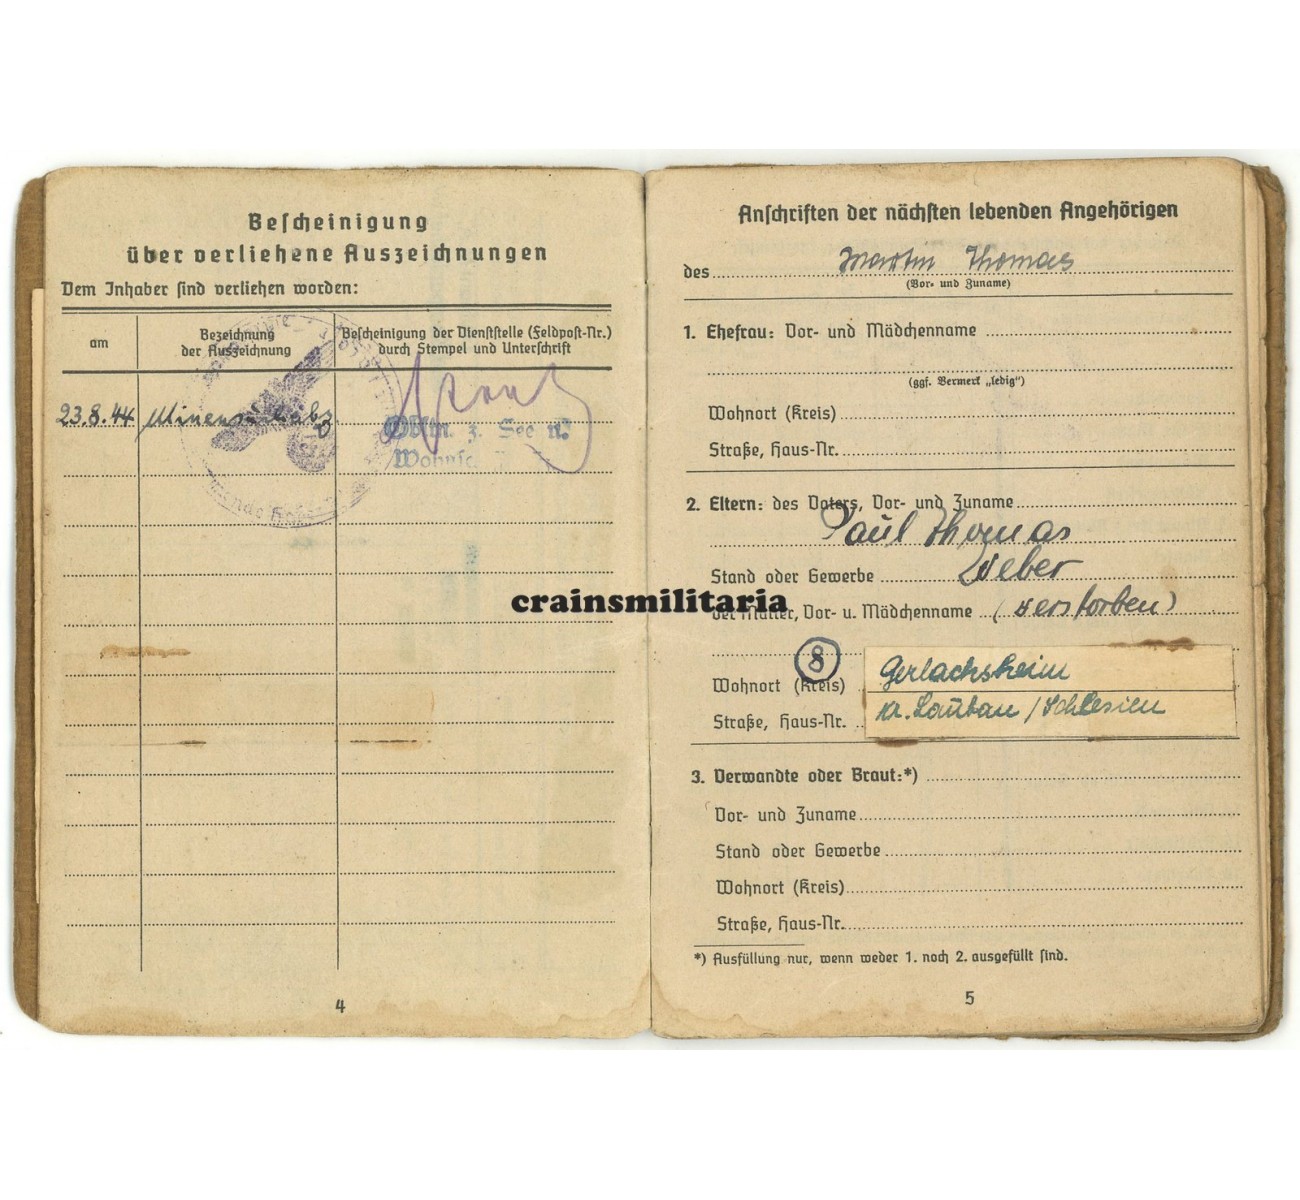 Bescheinigung
über verliehene Auszeichnungen
Dem Inhaber sind verliehen worden:
am
Bezeichnung
der Auszeichnung
Bescheinigung der Dienststelle (Feldpost-Nr.)
durch Stempel und Unterschrift
23.8.44
z. See
4
Anschriften der nächsten lebenden Angehörigen
des Martin Thomas
(Vor- und Zuname)
1. Ehefrau: Vor- und Mädchenname
(ggf. Vermerk „ledig")
Wohnort (Kreis)
Straße, Haus-Nr.
2. Eltern: des Vaters, Vor- und Zuname
Paul Thomas
Stand oder Gewerbe Weber
der Mutter, Vor- u. Mädchenname (verstorben)
8
Wohnort (Kreis) Gerlachsheim
Straße, Haus-Nr. Kr. Lauban / Schlesien
3. Verwandte oder Braut:*)
Vor- und Zuname
Stand oder Gewerbe
Wohnort (Kreis)
Straße, Haus-Nr.
*) Ausfüllung nur, wenn weder 1. noch 2. ausgefüllt sind.
5
crainsmilitaria